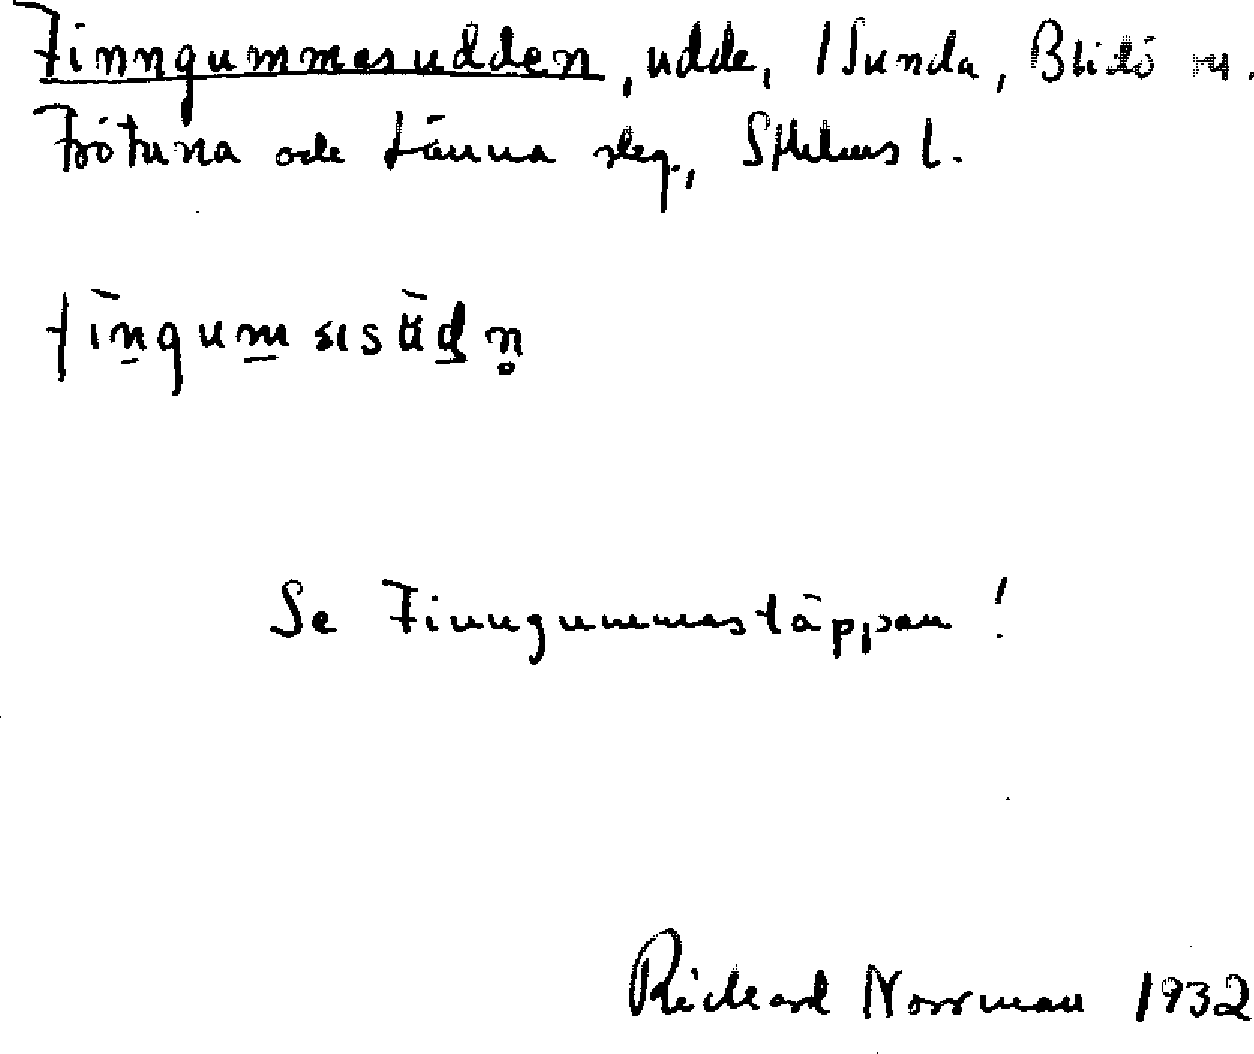 Finngummesudden, udde, 1 Sunda, Blidö sn.
Frötuna och Länna skg., Sthlms l.
Se Finngummestäppan!
Richard Norrman 1932